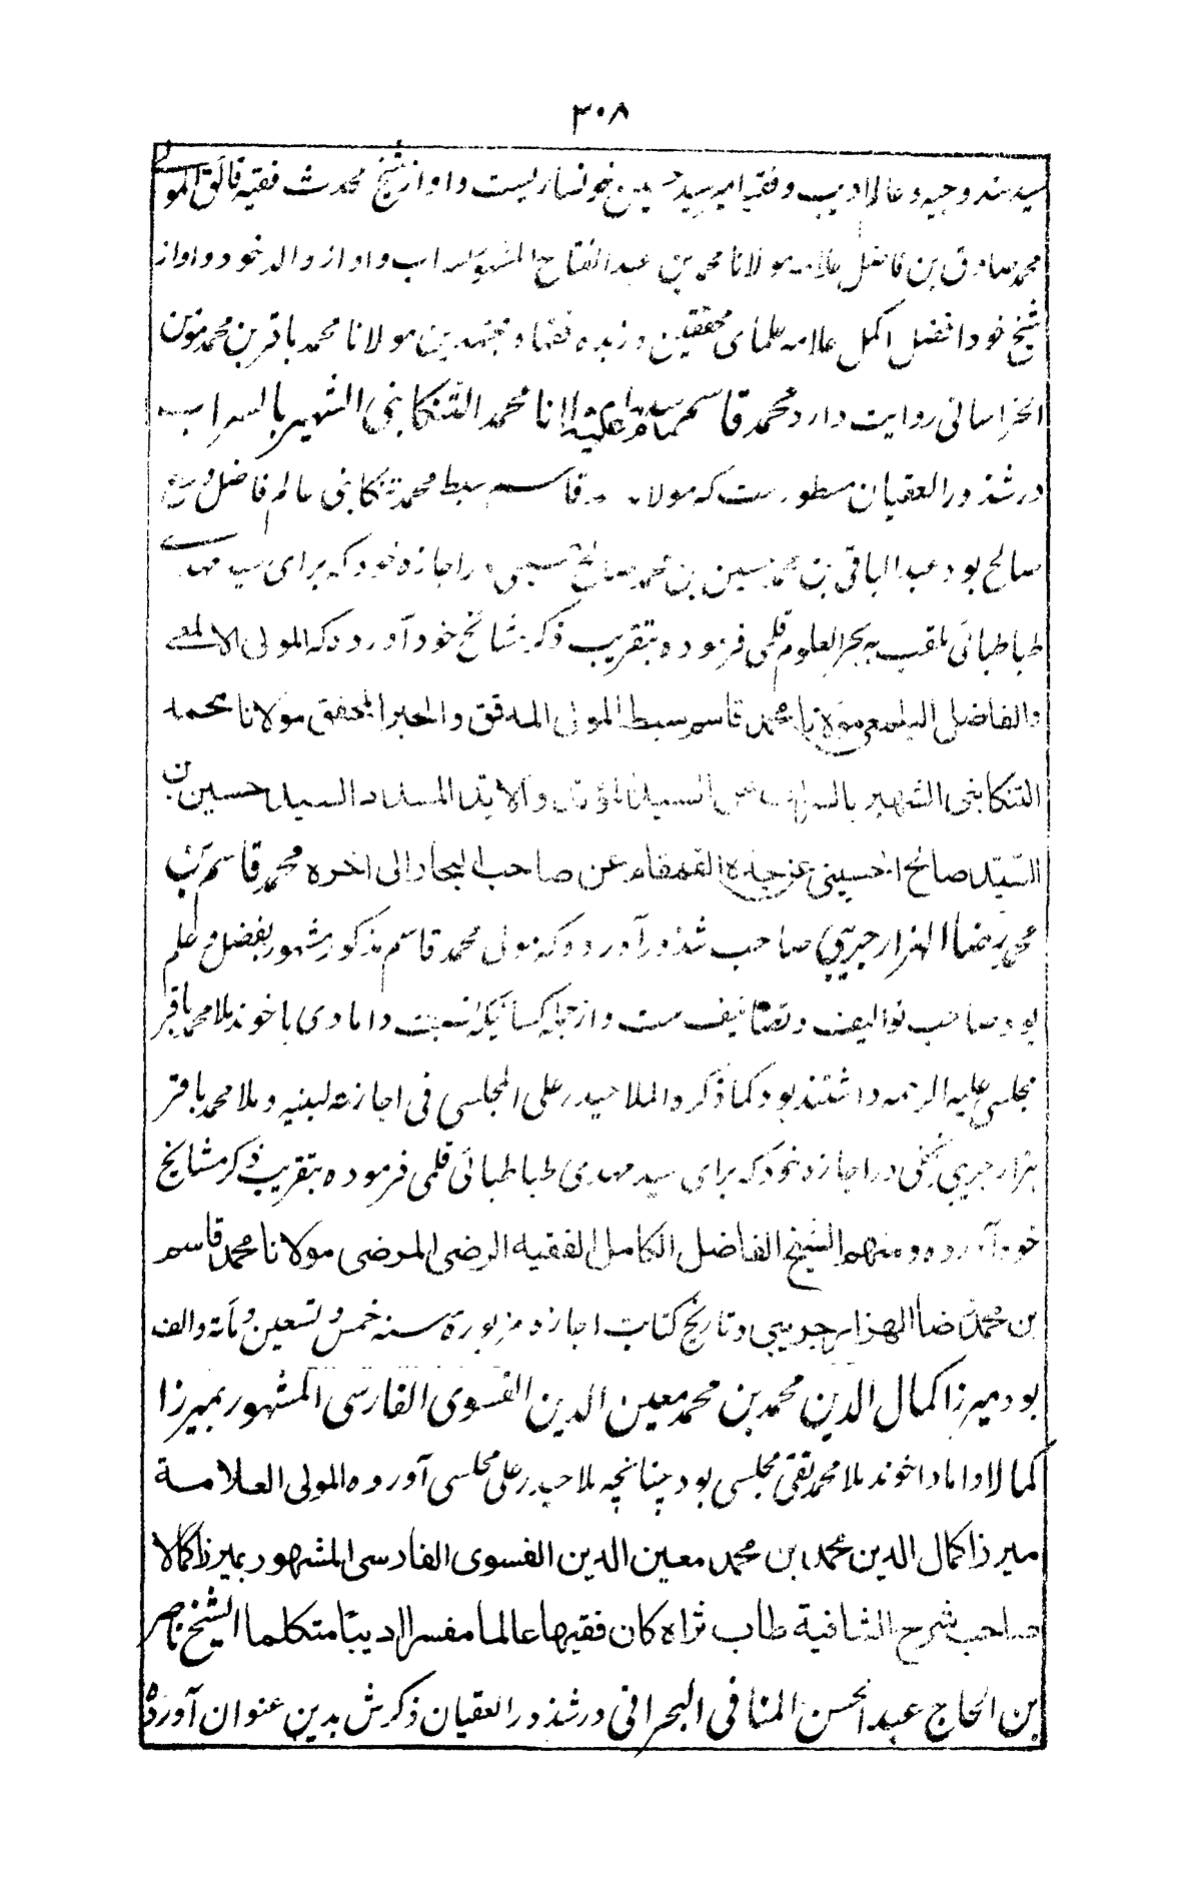 ۳۰۸
سید سند وجیه و عالم ادیب و فقیه امیر سید حسین خونساریست و او از شیخ محدث فقیه فائق المولی
محمد صادق بن فاضل علامه مولانا محمد بن عبد الفتاح المشهور بسراب و او از والد خود و او از
شیخ خود افضل اکمل علامه علمای محققین و زبده فقها و مجتهدین مولانا محمد باقر بن محمد مومن
الخراسانی روایت دارد محمد قاسم انا محمد التنکابنی الشهیر بالسراب
در شذور العقیان مسطور ست که مولا قاسم سبط محمد تنکابنی عالم فاضل ورع
صالح بود عبد الباقی بن محمد حسین بن محمد صالح حسینی در اجازه خود که برای سید مهدی
طباطبائی ملقب به بحر العلوم قلمی فرموده بتقریب ذکر مشائخ خود آورده که المولی الالمعی
والفاضل الیلمعی مولانا محمد قاسم سبط المولی المدقق والحبر المحقق مولانا محمد
التنکابنی الشهیر بالسراب عن السید المؤید والاید المسدد السید حسین بن
السید صالح الحسینی عن جده القمقام عن صاحب البحار الی اخره محمد قاسم بن
محمد رضا الهزارجریبی صاحب شذور آورده که مولی محمد قاسم مذکور مشهور بفضل و علم
بود صاحب توالیف و تصانیف ست و از جمله کسانیکه نسبت دامادی باخوند ملا محمد باقر
مجلسی علیه الرحمه داشتند بود کما ذکره الملا حیدر علی المجلسی فی اجازته لبنیه و ملا محمد باقر
هزارجریبی نجفی در اجازه خود که برای سید مهدی طباطبائی قلمی فرموده بتقریب ذکر مشایخ
خود آورده ومنهم الشیخ الفاضل الکامل الفقیه الرضی المرضی مولانا محمد قاسم
بن محمد رضا الهزارجریبی و تاریخ کتابت اجازه مزبوره سنه خمس و تسعین و مأته والف
بود میرزا کمال الدین محمد بن محمد معین الدین الفسوی الفارسی المشهور بمیرزا
کمالا داماد اخوند ملا محمد تقی مجلسی بود چنانچه ملا حیدر علی مجلسی آورده المولی العلامة
میرزا کمال الدین محمد ابن محمد معین الدین الفسوی الفارسی المشهور بمیرزا کمالا
صاحب شرح الشافیة طاب ثراه کان فقیها عالما مفسرا ادیبا متکلما الشیخ ناصر
بن الحاج عبد الحسن المنافی البحرانی در شذور العقیان ذکرش بدین عنوان آورده